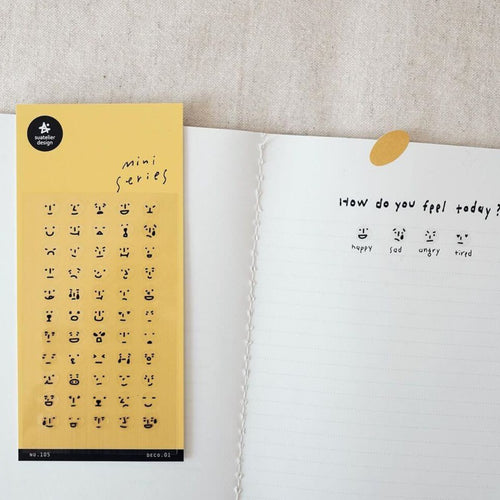 suatelier
design
mini
series
NO.105 DECO.01
How do you feel today?
happy sad angry tired